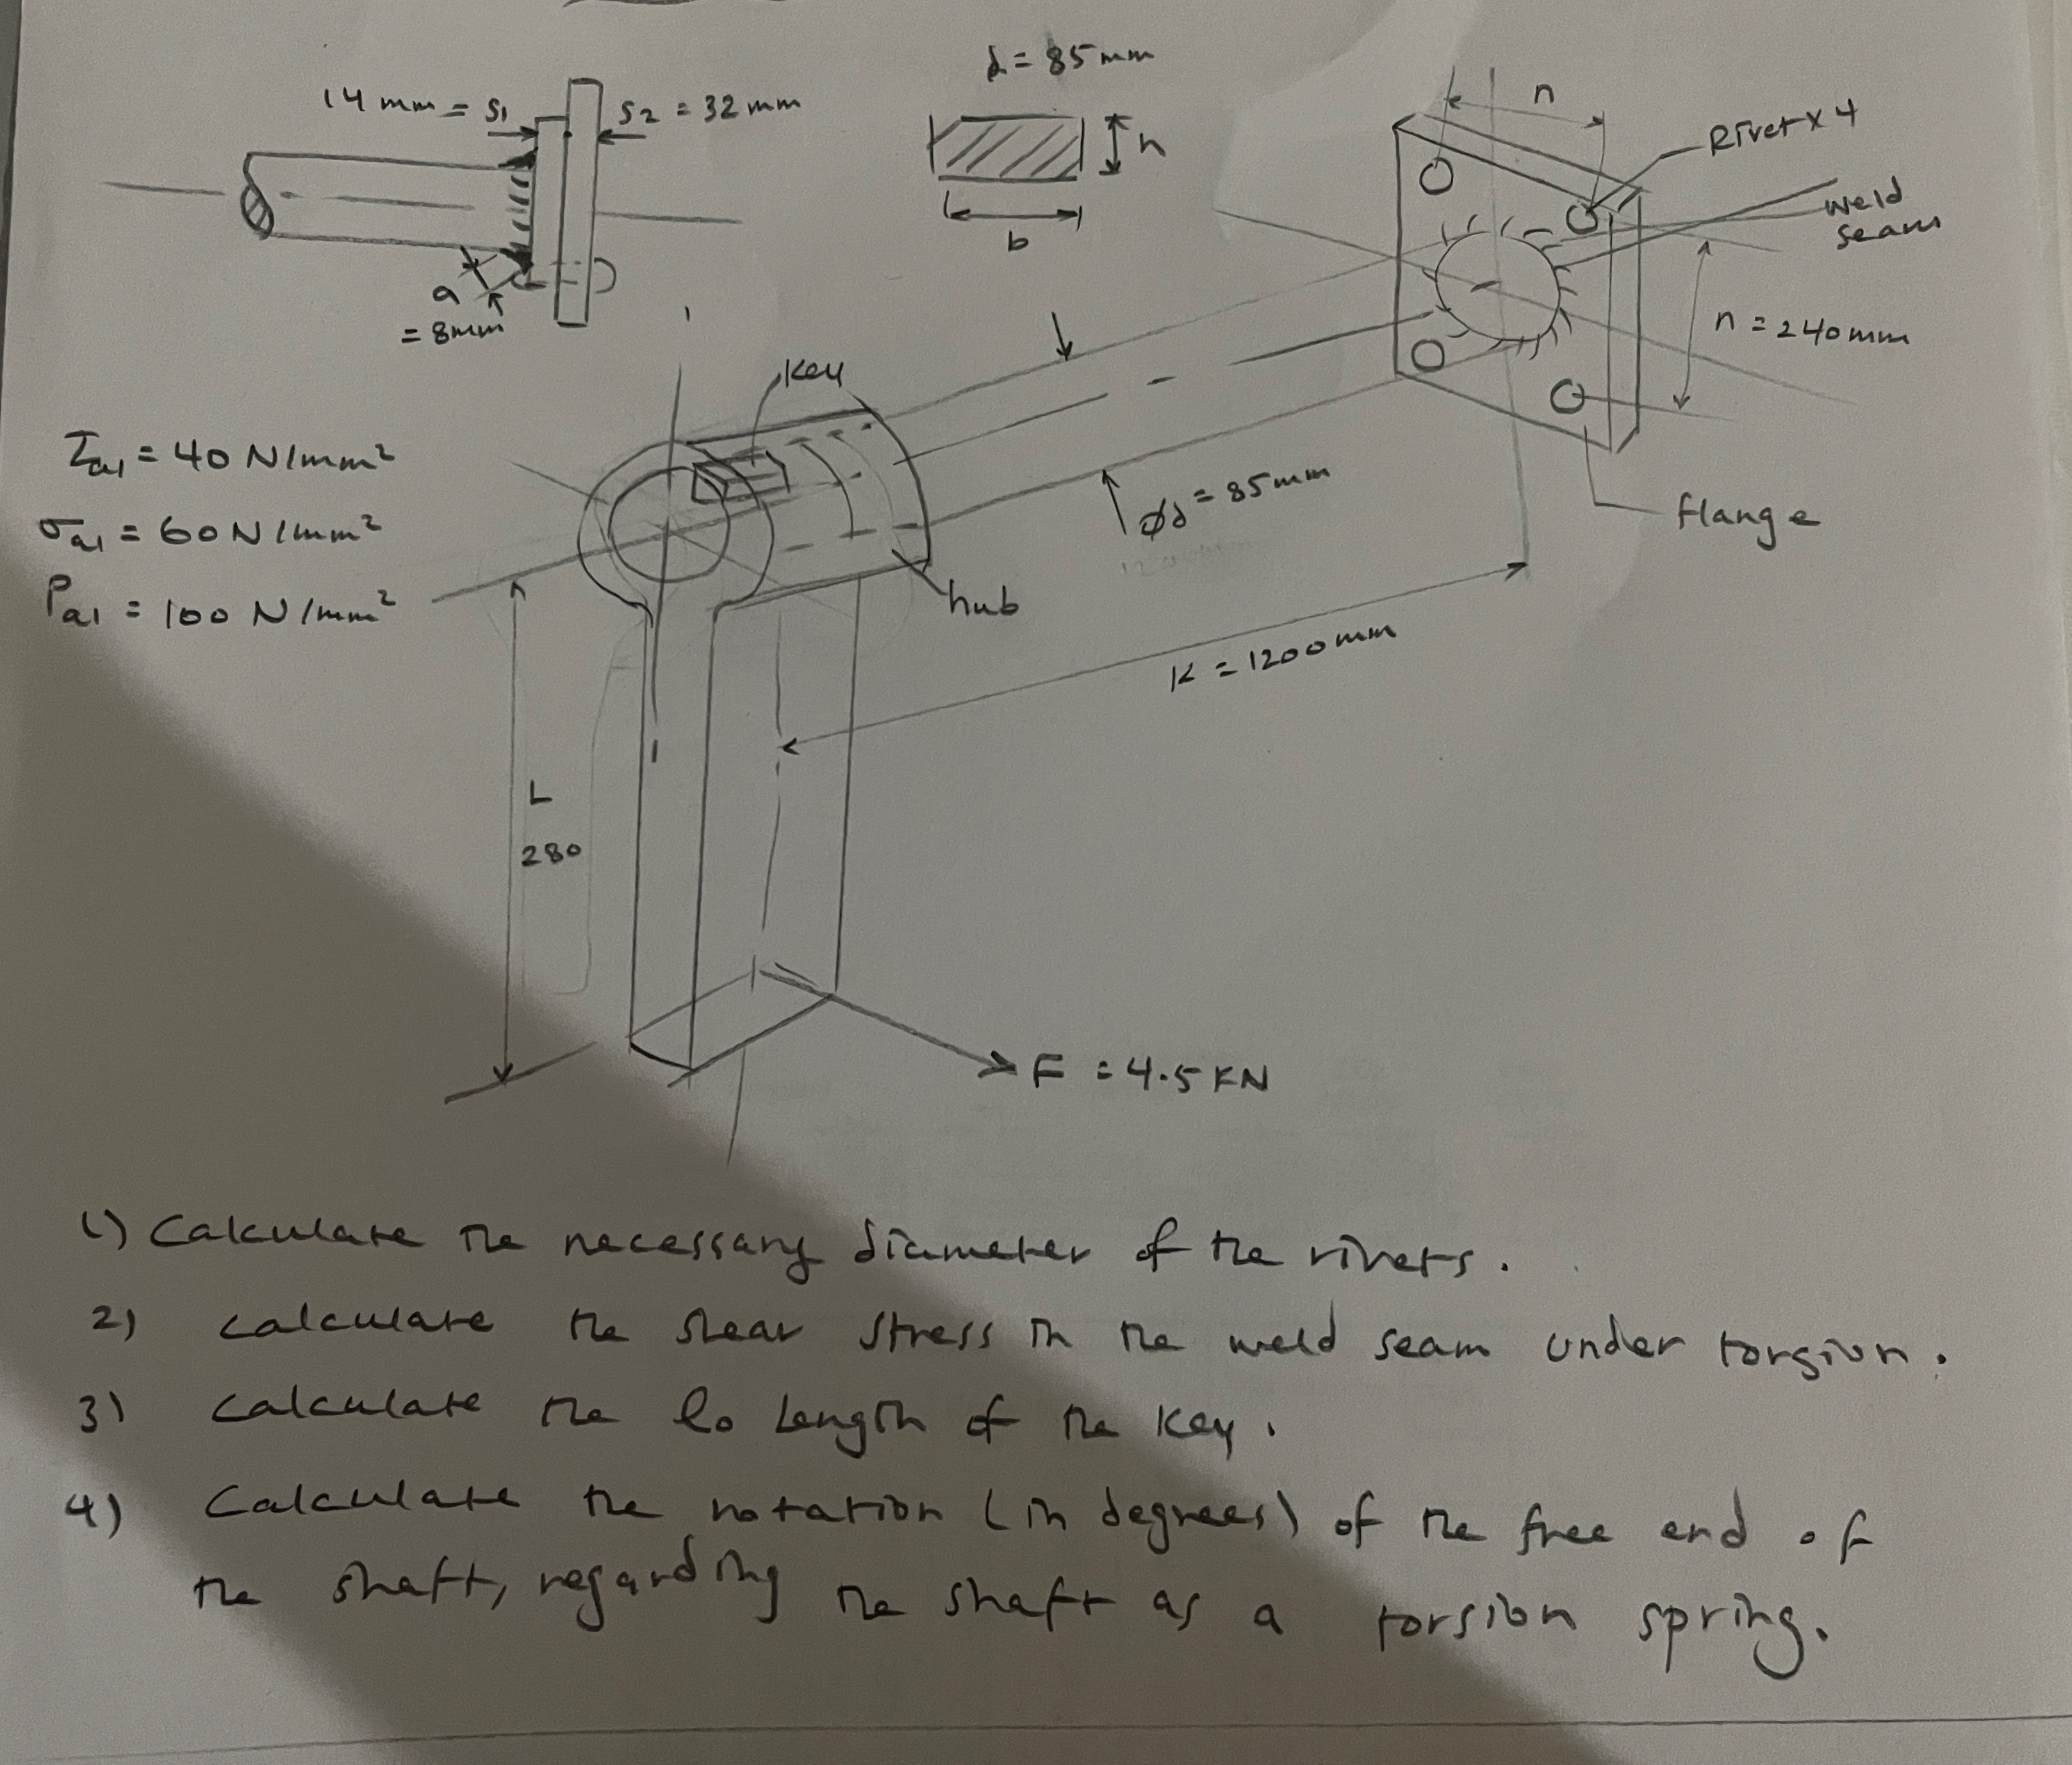 d = 85 mm
14 mm = S1
S2 = 32 mm
h
b
n
Rivet x 4
weld
seam
a
= 8mm
n = 240mm
key
τal = 40 N/mm²
σal = 60 N/mm²
Pal = 100 N/mm²
ød = 85mm
flange
hub
K = 1200mm
L
280
F = 4.5 KN
1) Calculate the necessary diameter of the rivets.
2) calculate the shear stress in the weld seam under torsion.
3) calculate the lo Length of the key.
4) Calculate the rotation (in degrees) of the free end of
the shaft, regarding the shaft as a torsion spring.